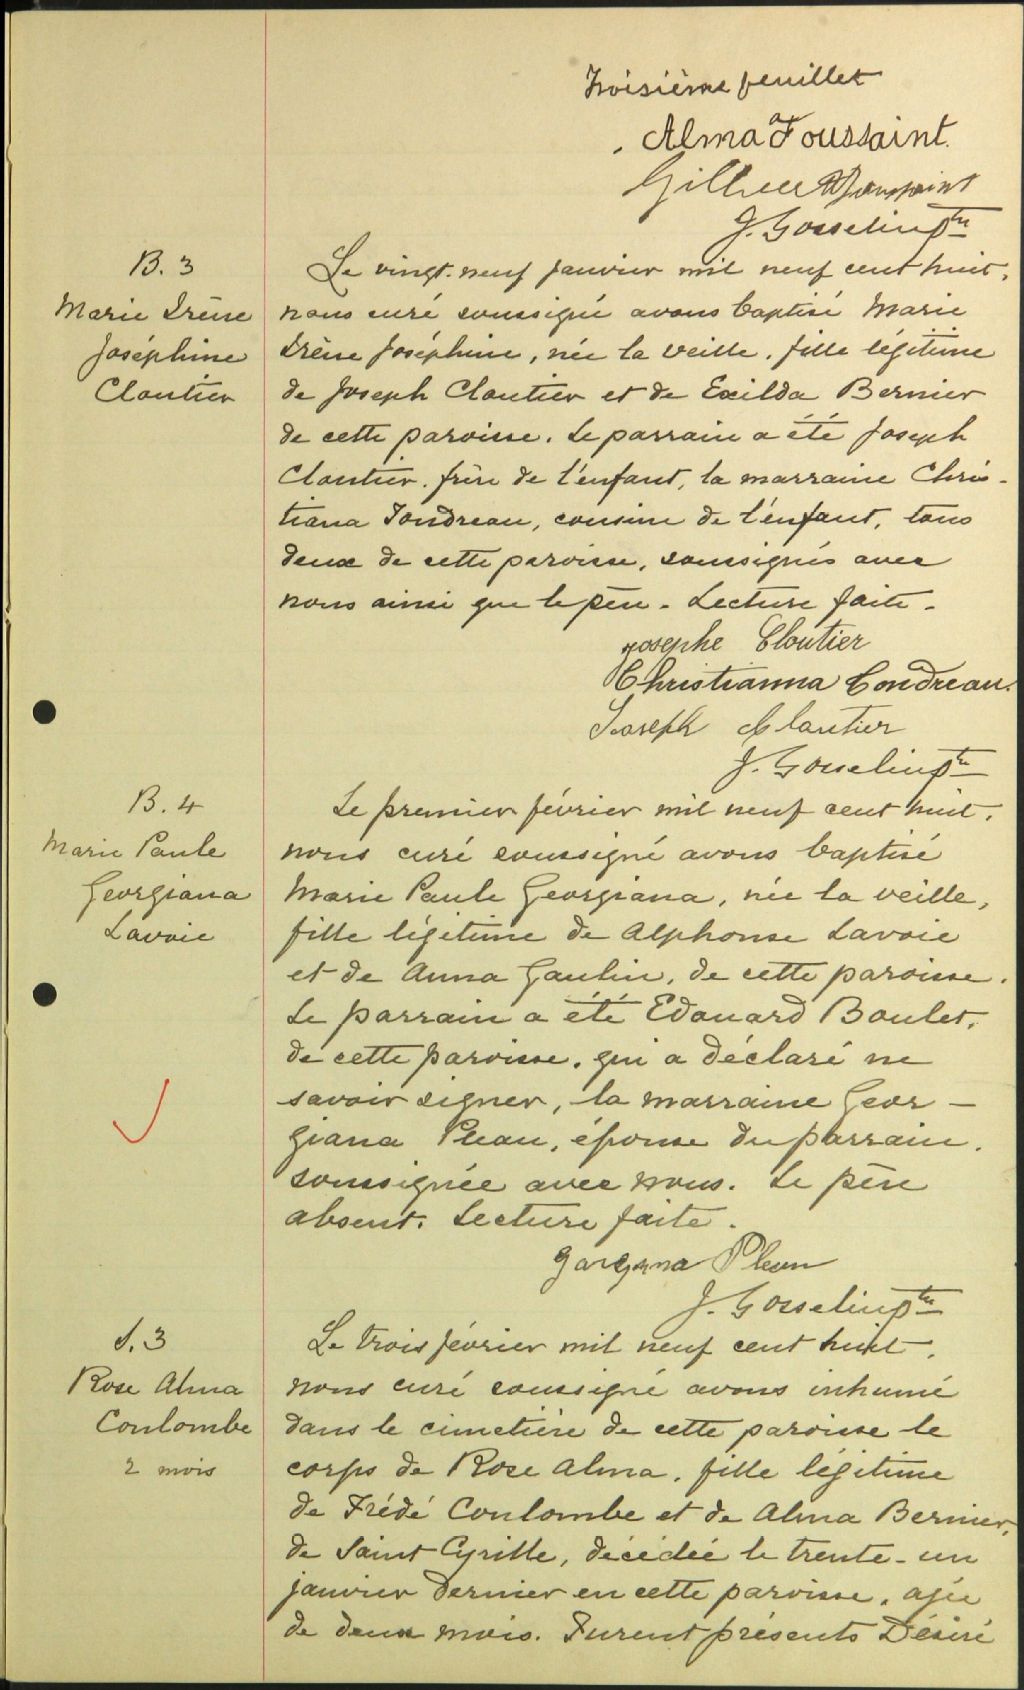 Troisième feuillet
Alma Toussaint
Toussaint
J. Gosselin ptre
B. 3
Marie Irène
Joséphine
Cloutier
Le vingt-neuf janvier mil neuf cent huit,
nous curé soussigné avons baptisé Marie
Irène Joséphine, née la veille, fille légitime
de Joseph Cloutier et de Exilda Bernier
de cette paroisse. Le parrain a été Joseph
Cloutier, frère de l'enfant, la marraine Chris-
tiana Tondreau, cousine de l'enfant, tous
deux de cette paroisse, soussignés avec
nous ainsi que le père. Lecture faite.
Josephe Cloutier
Christianna Tondreau.
Joseph Cloutier
J. Gosselin ptre
B. 4
Marie Paule
Georgiana
Lavoie
Le premier février mil neuf cent huit,
nous curé soussigné avons baptisé
Marie Paule Georgiana, née la veille,
fille légitime de Alphonse Lavoie
et de Anna Gaulin, de cette paroisse.
Le parrain a été Edouard Boulet,
de cette paroisse, qui a déclaré ne
savoir signer, la marraine Geor-
giana Pleau, épouse du parrain,
soussignée avec nous. Le père
absent. Lecture faite.
Pleau
J. Gosselin ptre
S. 3
Rose Alma
Coulombe
2 mois
Le trois février mil neuf cent huit,
nous curé soussigné avons inhumé
dans le cimetière de cette paroisse le
corps de Rose Alma, fille légitime
de Frédé Coulombe et de Alma Bernier,
de Saint Cyrille, décédée le trente-un
janvier dernier en cette paroisse, agée
de deux mois. Furent présents Désiré